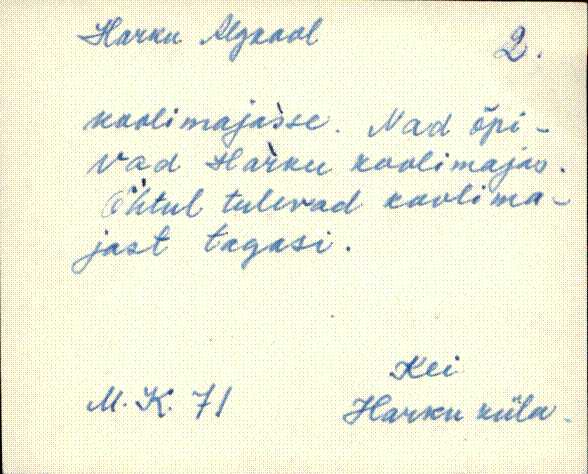 Harku Algkool
2.
koolimajasse. Nad õpi-
vad Harku koolimajas.
Õhtul tulevad koolima-
jast tagasi.
Kei
M. K. 71
Harku küla.